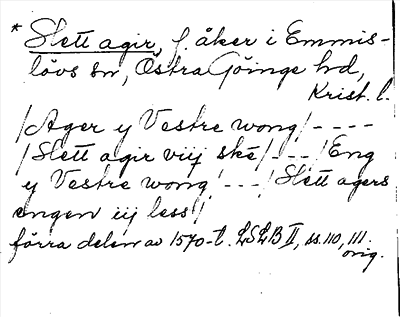 * Slett agir, f. åker i Emmis-
lövs sn, Östra Göinge hd,
Krist. l.
/Ager y Vestre wong/ - - - -
/Slett agir viij ske/ - - - /Eng
y Vestre wong/ - - - /Slett agers
engen iij less/
förra delen av 1570-t. LSLB II, ss. 110, 111.
orig.